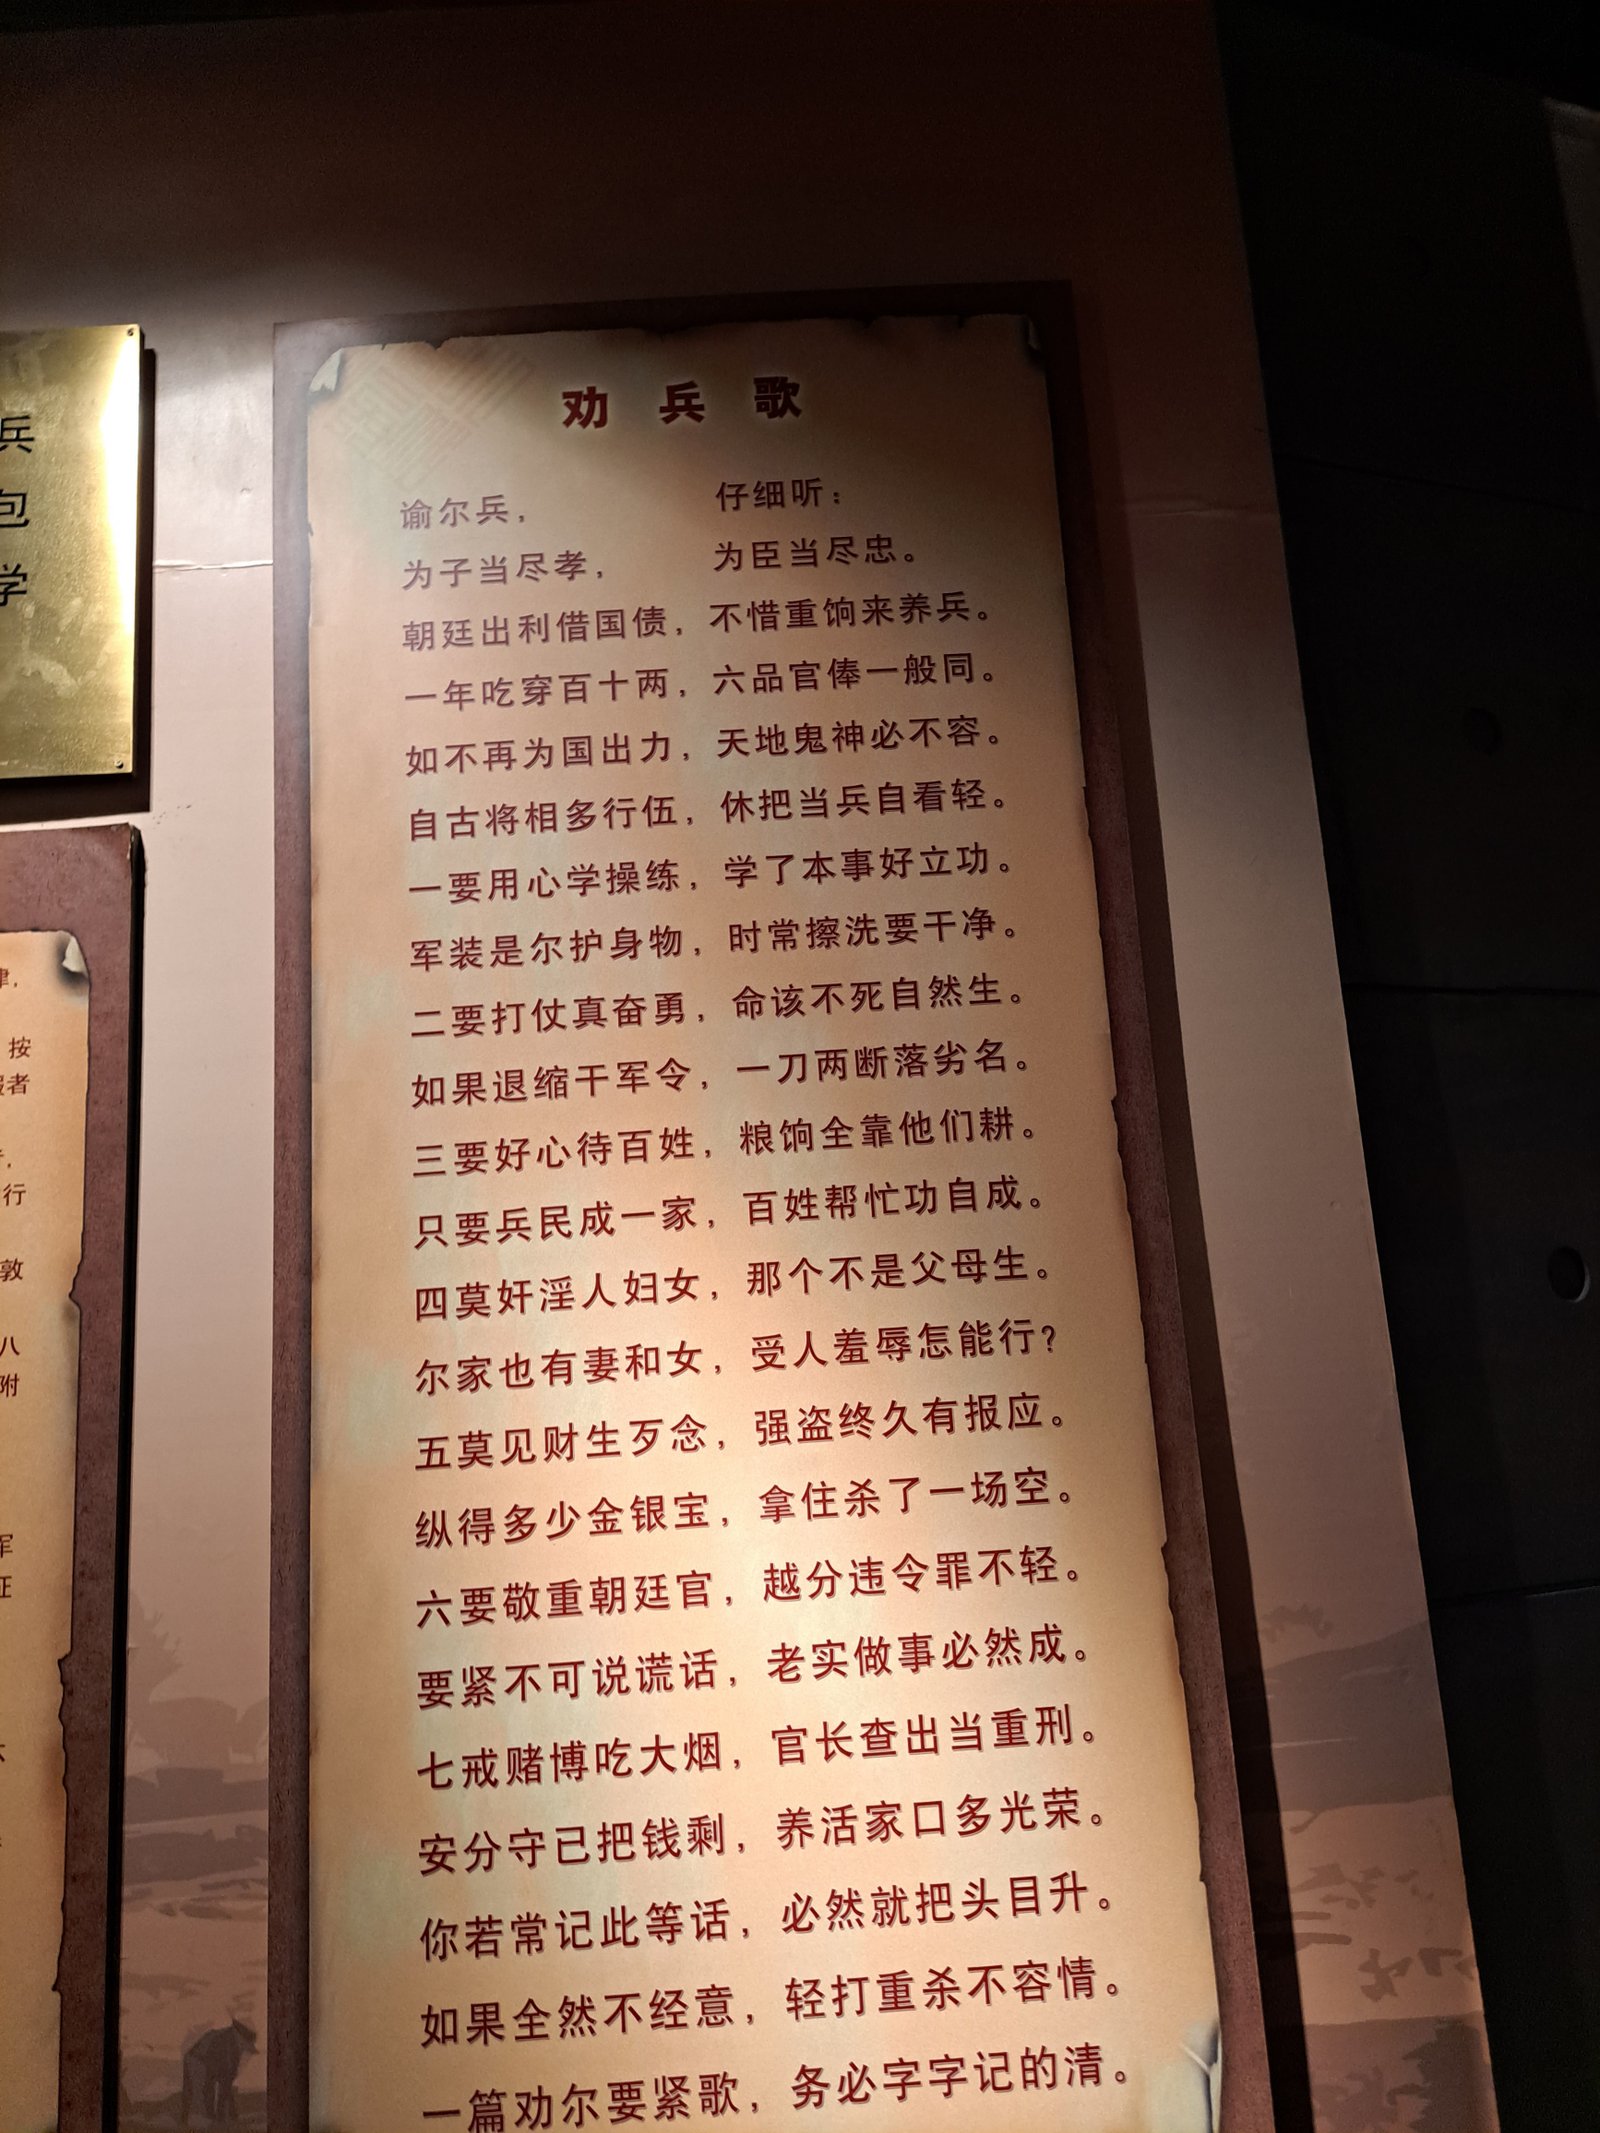 兵
包
学
律，
按
报者
行
敦
八
附
军
证
劝兵歌
谕尔兵， 仔细听：
为子当尽孝， 为臣当尽忠。
朝廷出利借国债，不惜重饷来养兵。
一年吃穿百十两，六品官俸一般同。
如不再为国出力，天地鬼神必不容。
自古将相多行伍，休把当兵自看轻。
一要用心学操练，学了本事好立功。
军装是尔护身物，时常擦洗要干净。
二要打仗真奋勇，命该不死自然生。
如果退缩干军令，一刀两断落劣名。
三要好心待百姓，粮饷全靠他们耕。
只要兵民成一家，百姓帮忙功自成。
四莫奸淫人妇女，那个不是父母生。
尔家也有妻和女，受人羞辱怎能行？
五莫见财生歹念，强盗终久有报应。
纵得多少金银宝，拿住杀了一场空。
六要敬重朝廷官，越分违令罪不轻。
要紧不可说谎话，老实做事必然成。
七戒赌博吃大烟，官长查出当重刑。
安分守已把钱剩，养活家口多光荣。
你若常记此等话，必然就把头目升。
如果全然不经意，轻打重杀不容情。
一篇劝尔要紧歌，务必字字记的清。